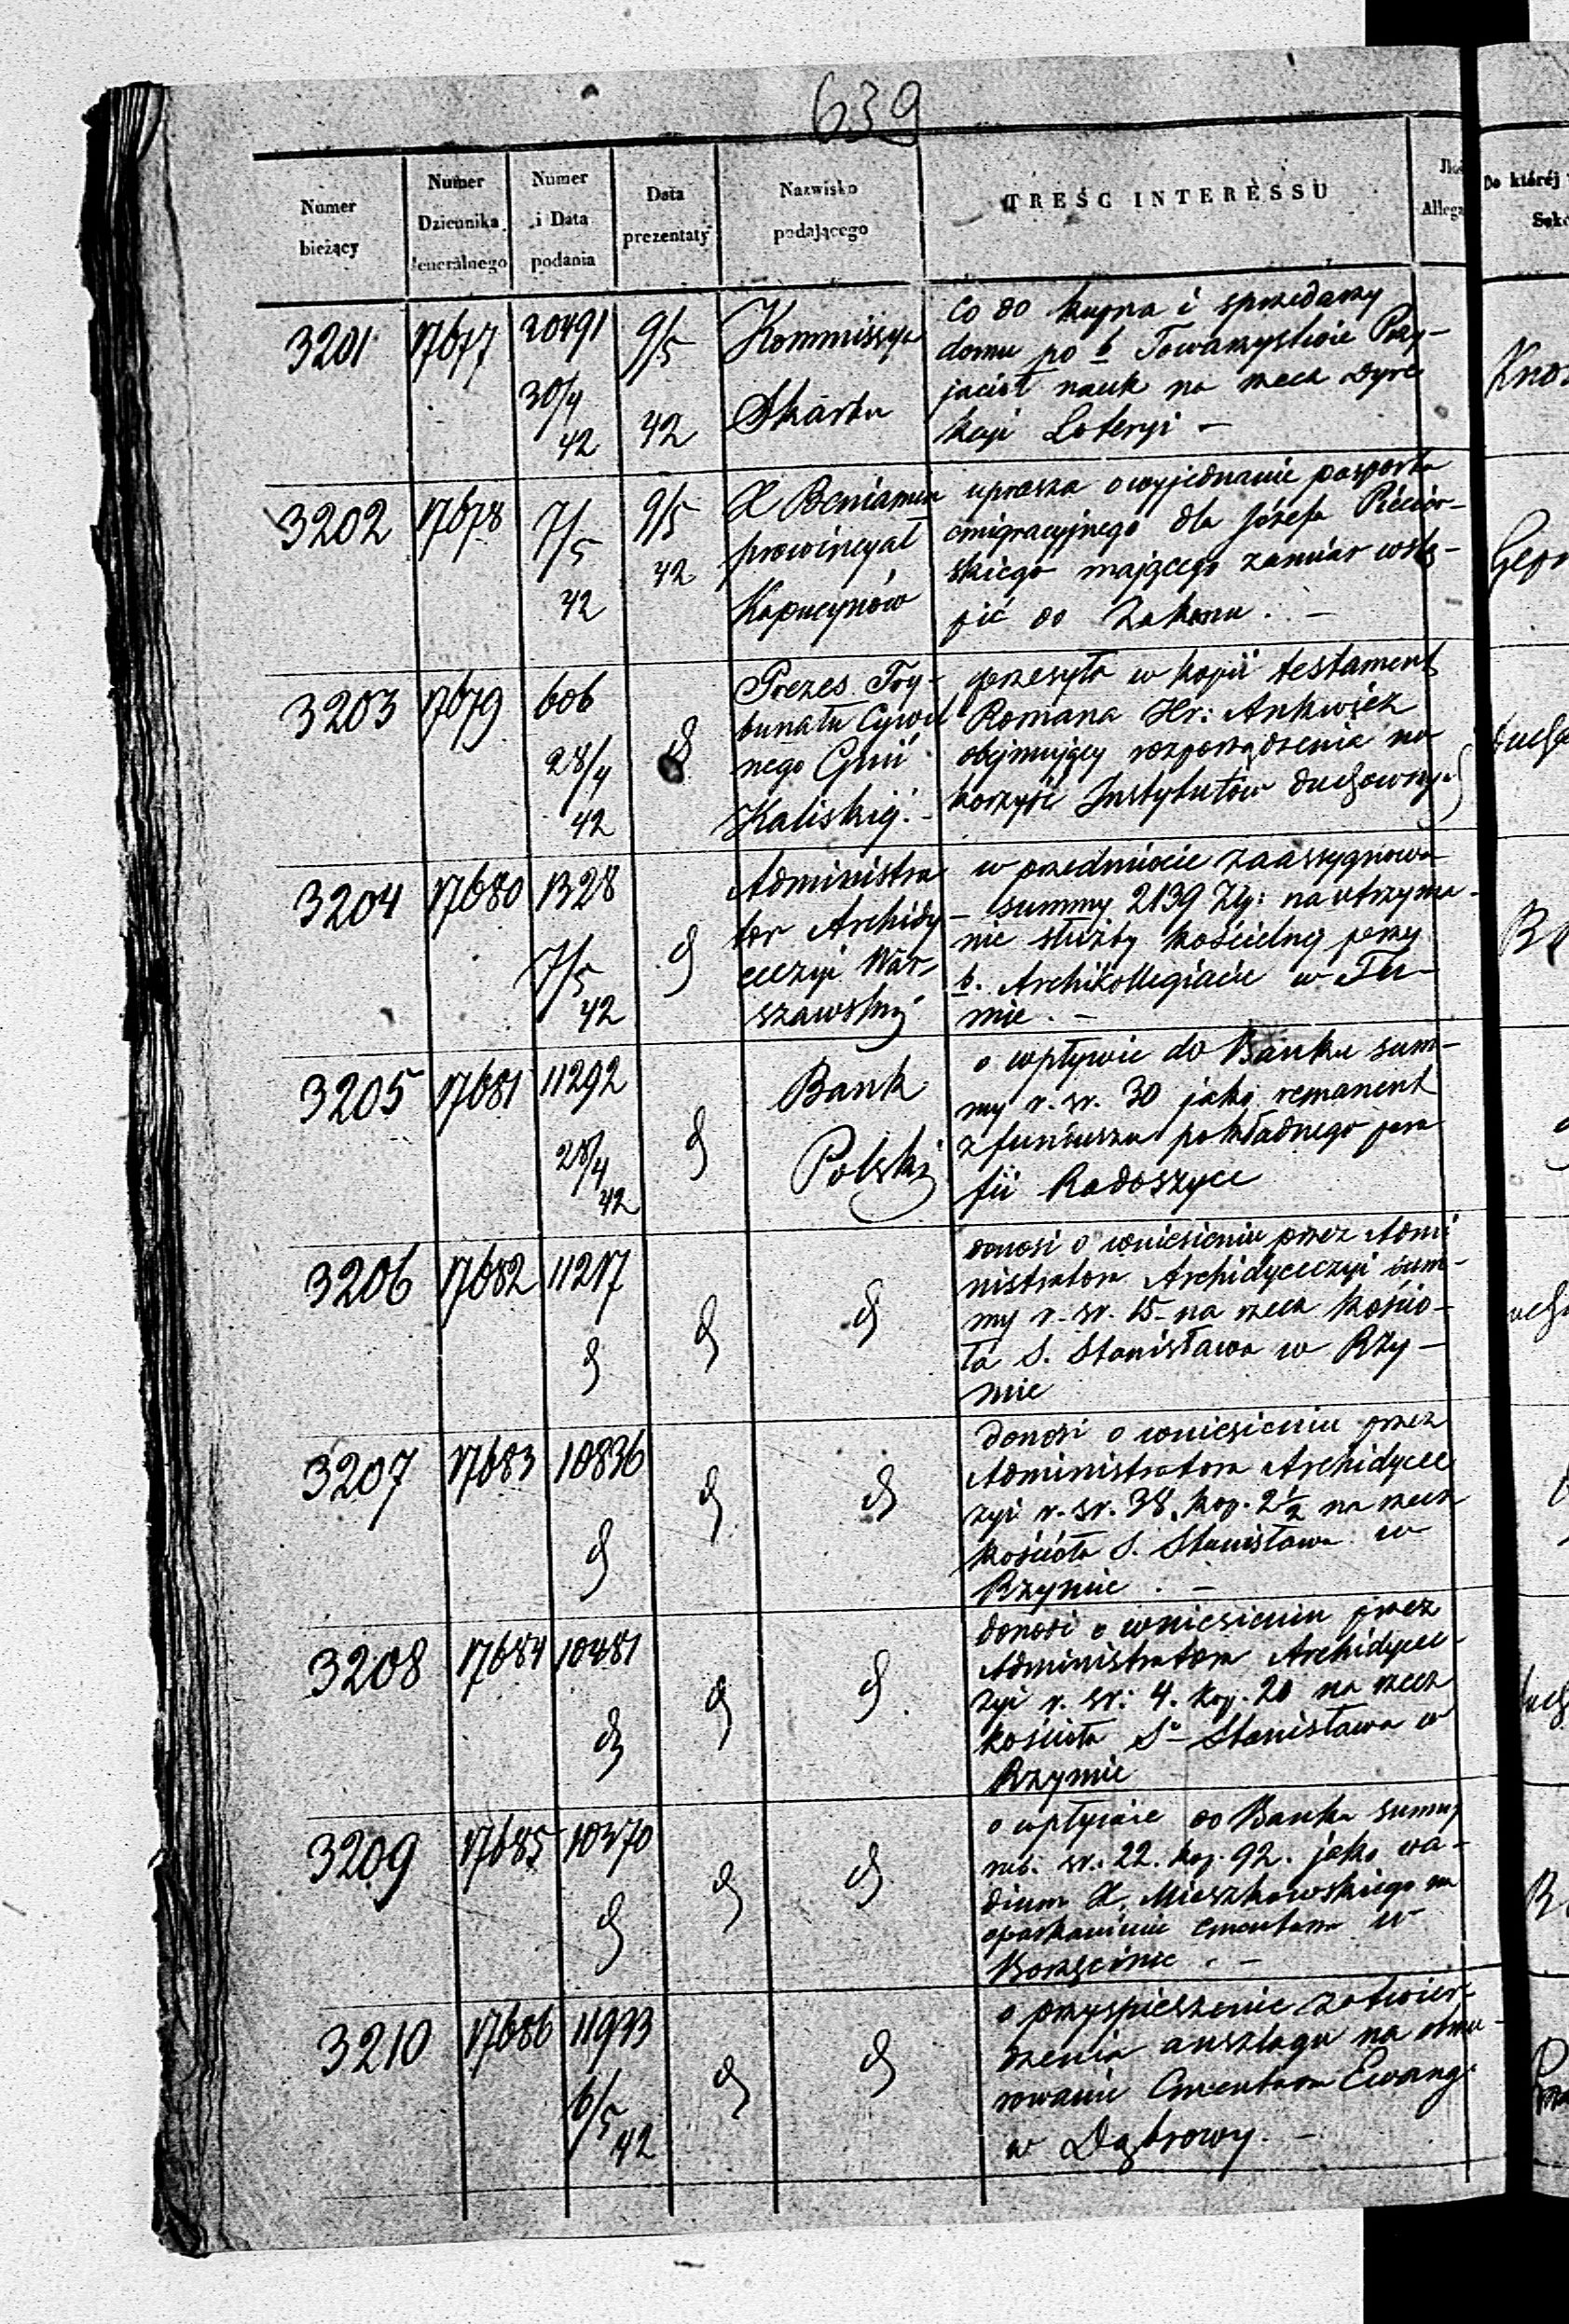 639
Numer bieżący
Numer Dziennika Jeneralnego
Numer i Data podania
Data prezentaty
Nazwisko podającego
TREŚĆ INTERESSU
Allega
Do któréj
3201 17677 20491 30/4 42 9/5 42
Kommissya
Skarbu
Co do kupna i sprzedarzy
domu po b Towarzystwie Przy-
jaciół nauk na rzecz Dyre
kcyi Loteryi –
3202 17678 7/5 42 9/5 42
X Beniamin
prowincyał
Kapucynów
uprasza o wyjednanie pasportu
emigracyjnego dla Józefa
skiego mającego zamiar wstą-
pić do Zakonu. –
3203 17679 606 28/4 42 d
Prezes Try-
bunału Cywil
nego Gnii
Kaliskiej. –
przesyła w kopii testament
Romana Hr: Ankwicz
obejmujący rozporządzenie na
korzyść Instytutów duchownych
3204 17680 1328 7/5 42 d
Administra
tor Archidy-
ecezyi War-
szawskiej
w przedmiocie zaassygnowa-
summy 2139 Złp: na utrzyma-
nie służby kościelnej przy
b. Archikollegiacie w Tu-
mie. –
3205 17681 11292 28/4 42 d
Bank
Polski
o wpływie do Banku sum-
my r. sr. 30 jako remanent
z funduszu pokładnego para
fii Radoszyce
3206 17682 11217 d d d
donosi o wniesieniu przez Admi
nistratora Archidyecezyi sum-
my r. sr. 15 na rzecz kościo-
ła S. Stanisława w Rzy-
mie
3207 17683 10836 d d d
donosi o wniesieniu przez
Administratora Archidyece
zyi r. sr. 38. kop. 2½ na rzecz
kościoła S. Stanisława w
Rzymie. –
3208 17684 10481 d d d
donosi o wniesieniu przez
Administratora Archidyece-
zyi r. sr: 4. kop. 20 na rzecz
kościoła So Stanisława w
Rzymie
3209 17685 10370 d d d
o wpływie do Banku summy
rub. sr: 22. kop. 92. jako va-
dium X. Mieszkowskiego na
oparkanienie cmentarza w
Borzęcinie. –
3210 17686 11933 6/5 42 d d
o przyspieszenie zatwier-
dzenia anszlagu na obmu-
rowanie Cmentarza Ewang:
w Dąbrowy. –